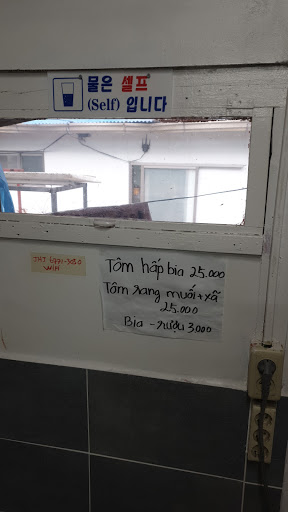 물은 셀프
(Self) 입니다
Tôm hấp bia 25.000
Tôm rang muối + xã
25.000
Bia - rượu 3000
WIN